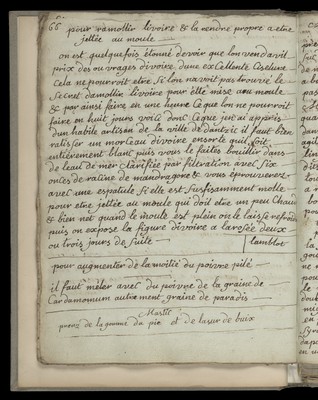 66 pour ramollir livoire & la rendre propre a etre
jettée au moule
on est quelquefois étonné de voir que lon vend a vil
prix des ouvrages divoire dune excellente Ciselure
Cela ne pourroit etre si lon navoit pas trouvé le
secret damollir livoire pour être mise au moule
& par ainsi faire en une heure Ce que lon ne pourroit
faire en huit jours voila donc Ce que jen ai appris
dun habile artisan de la ville de dantzic il faut bien
ratisser un morceau divoire ensorte quil soit
entierement blanc puis vous le faites bouillir dans
de leau de mer clarifiée par filtration avec six
onces de racine de mandragore & vous éprouverez
avec une espatule si elle est suffisamment molle
pour etre jettée au moule qui doit etre un peu chaud
& bien net quand le moule est plein on le laisse refroidir
puis on expose la figure divoire a la rosée deux
ou trois jours de suite
lamblot
pour augmenter de la moitié du poivre pilé
il faut mêler avec du poivre de la graine de
Cardamomum autrement graine de paradis
Mastic
prenz de la gomme du pie et de la sur de buix